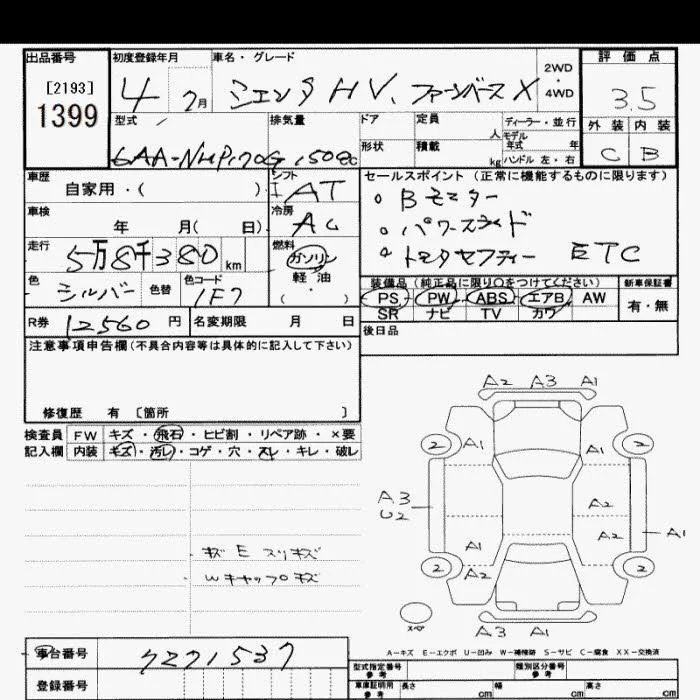 出品番号 初度登録年月 車名・グレード 2WD・4WD 評価点
[2193] 1399 4 2月 シエンタ HV、ファンベース X 3.5
型式 排気量 ドア 定員 人 ディーラー・並行 外装 内装
形状 積載 kg モデル年式 年 ハンドル 左・右 C B
6AA-NHP170G 1500cc
車歴 自家用・( ) シフト I AT セールスポイント (正常に機能するものに限ります)
車検 年 月( 日) 冷房 AC 。Bモニター
。パワースライド
走行 5万8千380 km 燃料 ガソリン 軽油 ( ) 。トヨタセフティー ETC
色 シルバー 色替 色コード 1F7 装備品 (純正品に限り○をつけてください) 新車保証書
PS PW ABS エアB AW 有・無
SR ナビ TV カワ
R券 12560 円 名変期限 月 日 後日品
注意事項申告欄(不具合内容等は具体的に記入して下さい)
修復歴 有 〔箇所 〕
検査員 FW キズ・飛石・ヒビ割・リペア跡・×要
記入欄 内装 キズ・汚レ・コゲ・穴・スレ・キレ・破レ
A2 A3 A1
2 A1 A1 2
A3 U2 A2
A2 A1
A1
2 A2 2
キズ E スリキズ
Wキャップキズ
スペア
A3 A1
A-キズ E-エクボ U-凹み W-補修跡 S-サビ C-腐食 XX-交換済
車台番号 7271537
登録番号
型式指定番号 参考 類別区分番号 参考
車庫証明用 参考 長さ cm 幅 cm 高さ cm